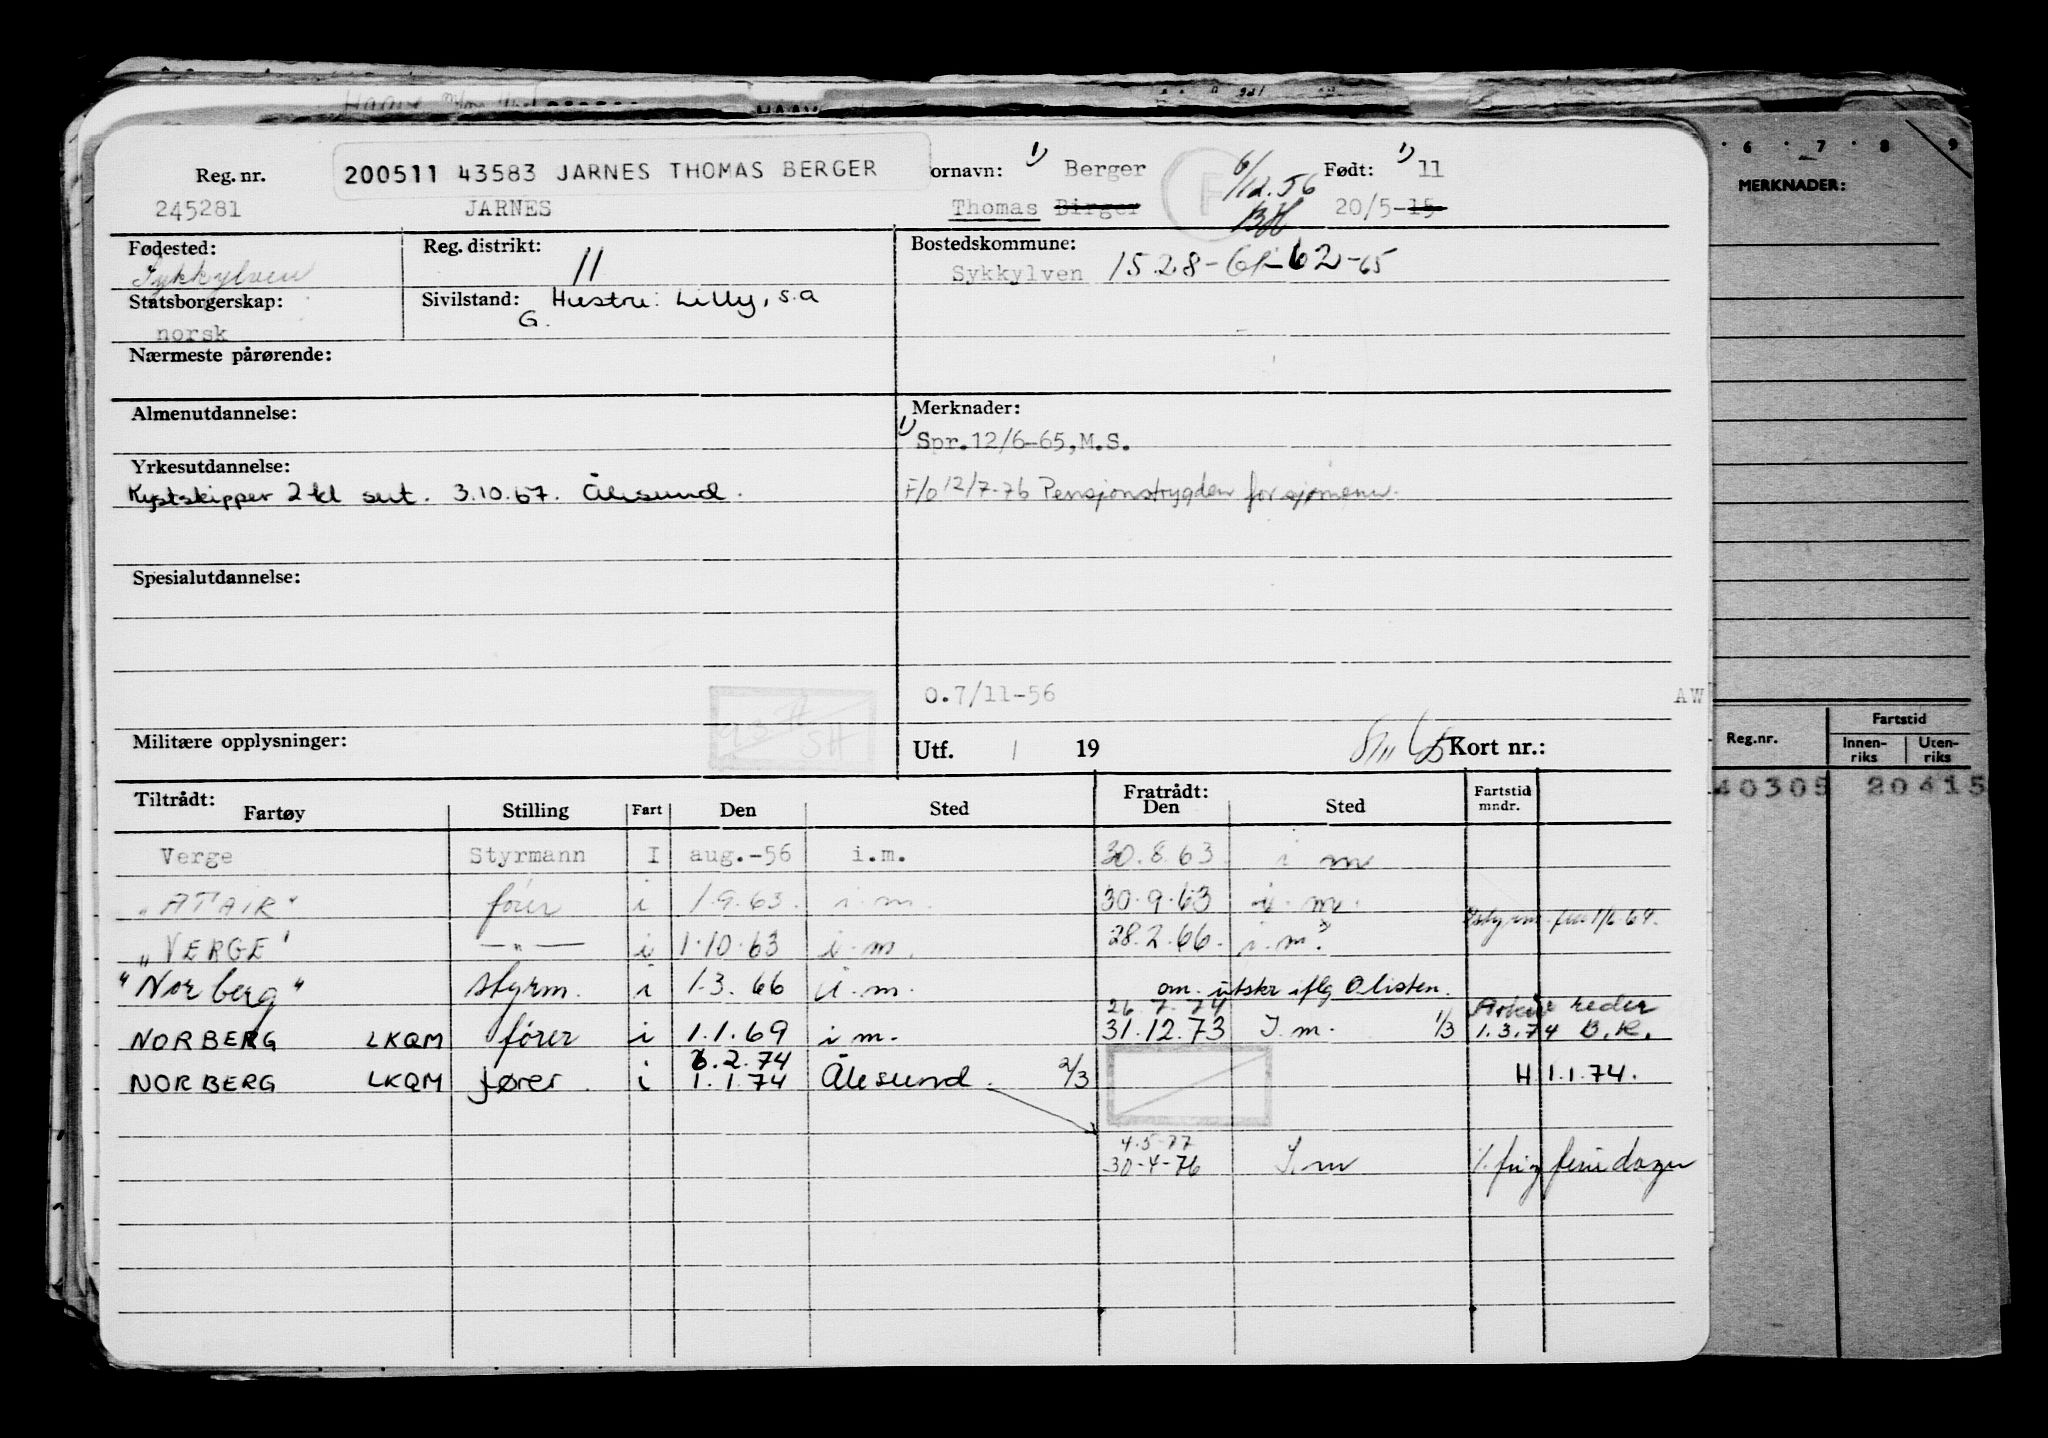 Reg. nr. 200511 43583 JARNES THOMAS BERGER ornavn: 1) Berger 6/12.56 Født: 1) 11
245281 JARNES Thomas Birger BH 20/5-15
Fødested: Reg. distrikt: 11 Bostedskommune:
Sykkylven Sykkylven 1528-61-62-65
Statsborgerskap: Sivilstand: Hustru: Lilly, s.a
norsk G.
Nærmeste pårørende:
Almenutdannelse: Merknader:
1) Spr.12/6-65,M.S.
Yrkesutdannelse:
Kystskipper 2 kl sert. 3.10.57. Ålesund. F/o 12/7-76 Pensjonstrygden for sjømenn.
Spesialutdannelse:
0.7/11-56 AW
Militære opplysninger: Utf. 19 Kort nr.:
Tiltrådt: Fratrådt: Fartstid
Fartøy Stilling Fart Den Sted Den Sted mndr.
Verge Styrmann I aug.-56 i.m. 30.8.63 i m
"ATAIR" fører i 1.9.63. i.m. 30.9.63 i.m.
"VERGE" —"— i 1.10.63 i.m. 28.2.66. i.m.
"Norberg" styrm. i 1.3.66 i.m. om. utskr iflg Olisten.
26.7.74 reder
NORBERG LKQM fører i 1.1.69 i m. 31.12.73 I.m. 1/3 1.3.74 B.K.
6.2.74
NORBERG LKQM fører. i 1.1.74 Ålesund. 2/3 H 1.1.74.
4-5-77
30-4-76 I.m feriedager
MERKNADER:
6 . 7 . 8 . 9
Reg.nr. Fartstid
Innen-riks Uten-riks
40305 20415